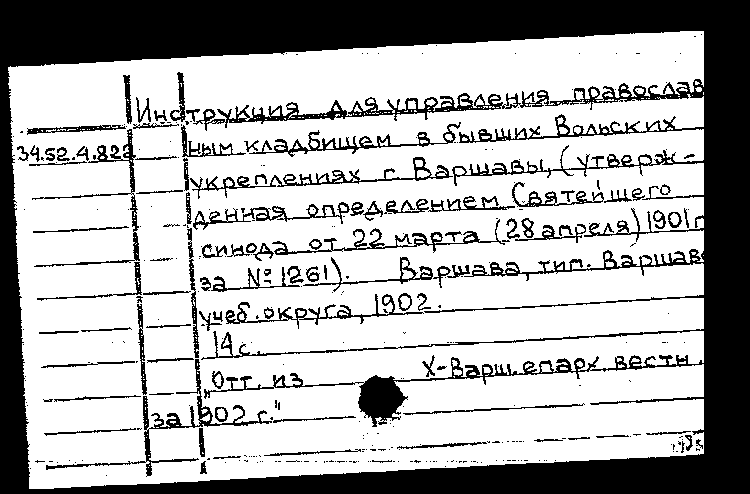 Инструкция для управления православ
34.52.4.822 ным кладбищем в бывших Вольских
укреплениях г. Варшавы, (утверж-
денная определением Святейшего
синода от 22 марта (28 апреля) 1901 г
за № 1261). Варшава, тип. Варшав
учеб. округа, 1902.
14 с.
„Отт. из Х-Варш. епарх. вестн.
за 1902 г."